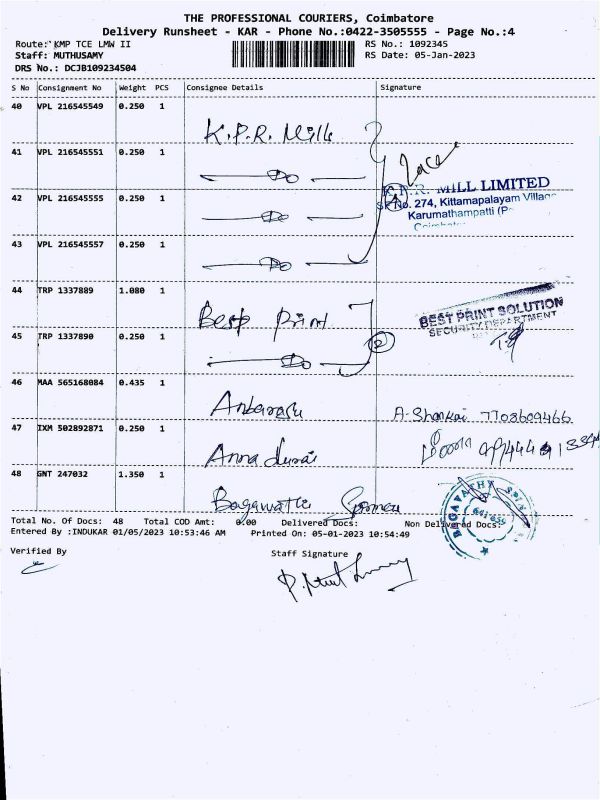 THE PROFESSIONAL COURIERS, Coimbatore
Delivery Runsheet - KAR - Phone No.:0422-3505555 - Page No.:4
Route: KMP TCE LMW II
RS No.: 1092345
Staff: MUTHUSAMY
RS Date: 05-Jan-2023
DRS No.: DCJB109234504
S No Consignment No Weight PCS Consignee Details Signature
40 VPL 216545549 0.250 1 K.P.R. Mills
41 VPL 216545551 0.250 1 Do
42 VPL 216545555 0.250 1 Do
K.P.R. MILL LIMITED
S.F.No. 274, Kittamapalayam Village
Karumathampatti (P
Coimbatore
43 VPL 216545557 0.250 1 Do
44 TRP 1337889 1.080 1 Best Print
BEST PRINT SOLUTION
SECURITY DEPARTMENT
45 TRP 1337890 0.250 1 Do 2
46 MAA 565168084 0.435 1 Anbarasu A-Shankar 7703609466
47 IXM 502892871 0.250 1 Anna durai
48 GNT 247032 1.350 1 Bagawathi
BAGAVATHY SPIN
641659
Total No. Of Docs: 48 Total COD Amt: 0.00 Delivered Docs: Non Delivered Docs:
Entered By :INDUKAR 01/05/2023 10:53:46 AM Printed On: 05-01-2023 10:54:49
Verified By Staff Signature